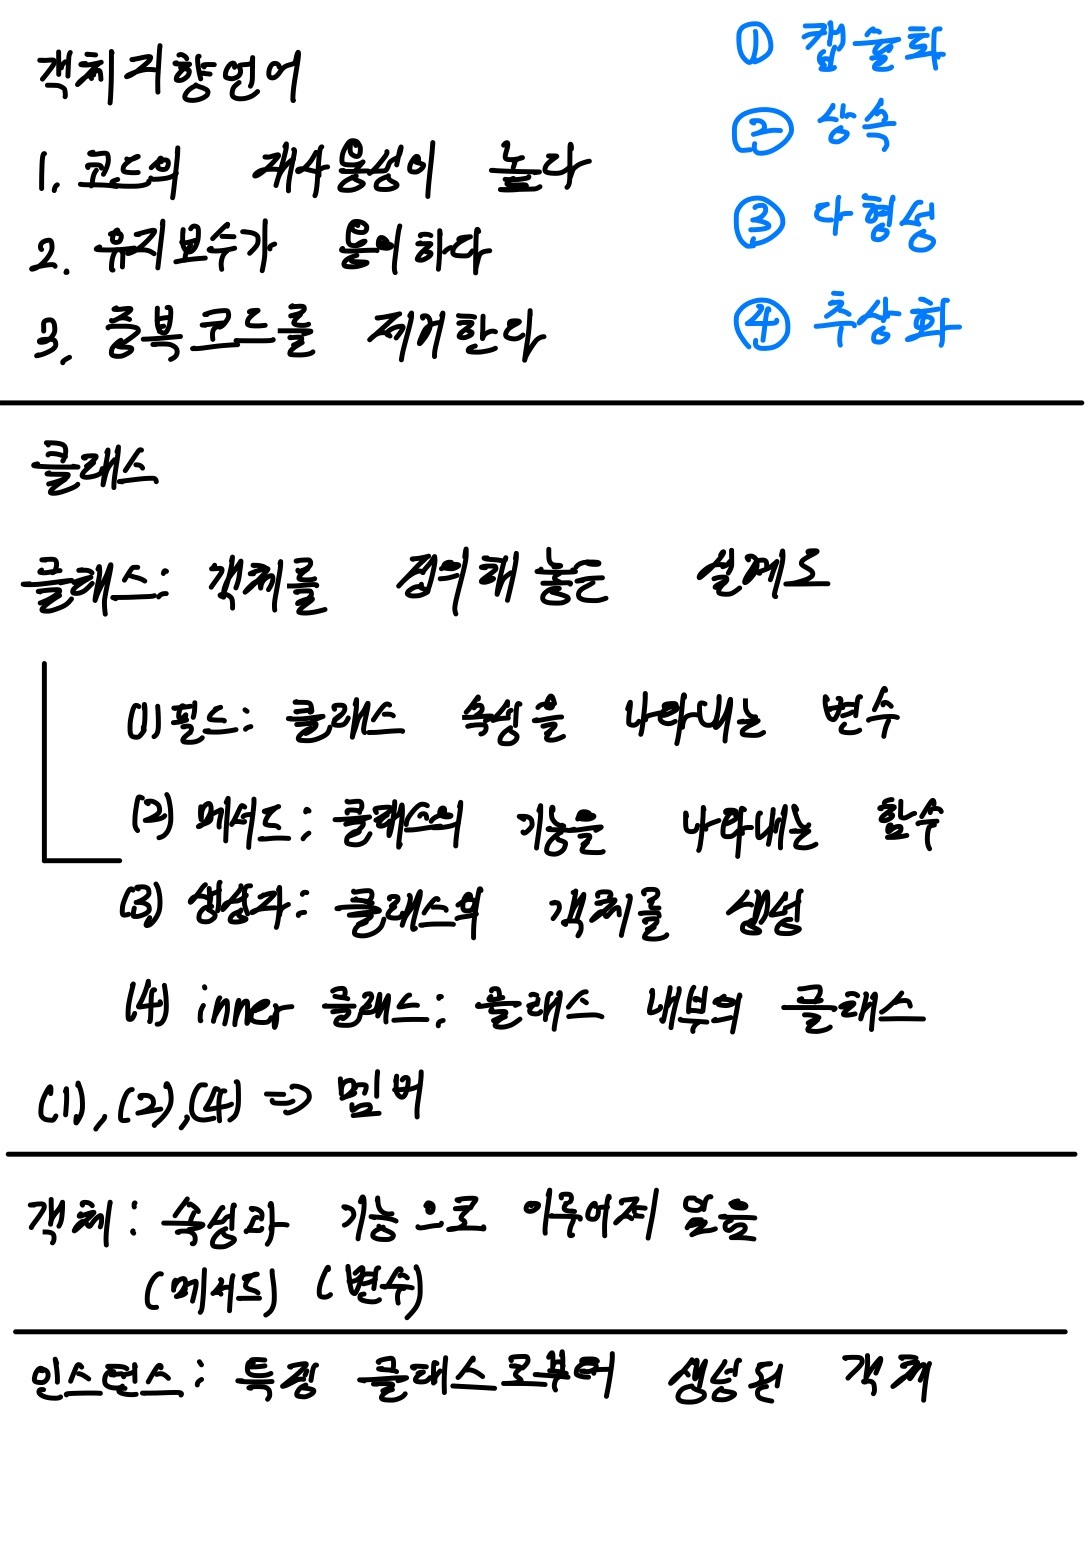 객체지향언어
1. 코드의 재사용성이 높다
2. 유지보수가 용이하다
3. 중복코드를 제거한다
① 캡슐화
② 상속
③ 다형성
④ 추상화
클래스
클래스: 객체를 정의해 놓은 설계도
(1) 필드: 클래스 속성을 나타내는 변수
(2) 메서드: 클래스의 기능을 나타내는 함수
(3) 생성자: 클래스의 객체를 생성
(4) inner 클래스: 클래스 내부의 클래스
(1),(2),(4) => 멤버
객체: 속성과 기능으로 이루어져 있음
(메서드) (변수)
인스턴스: 특정 클래스로부터 생성된 객체